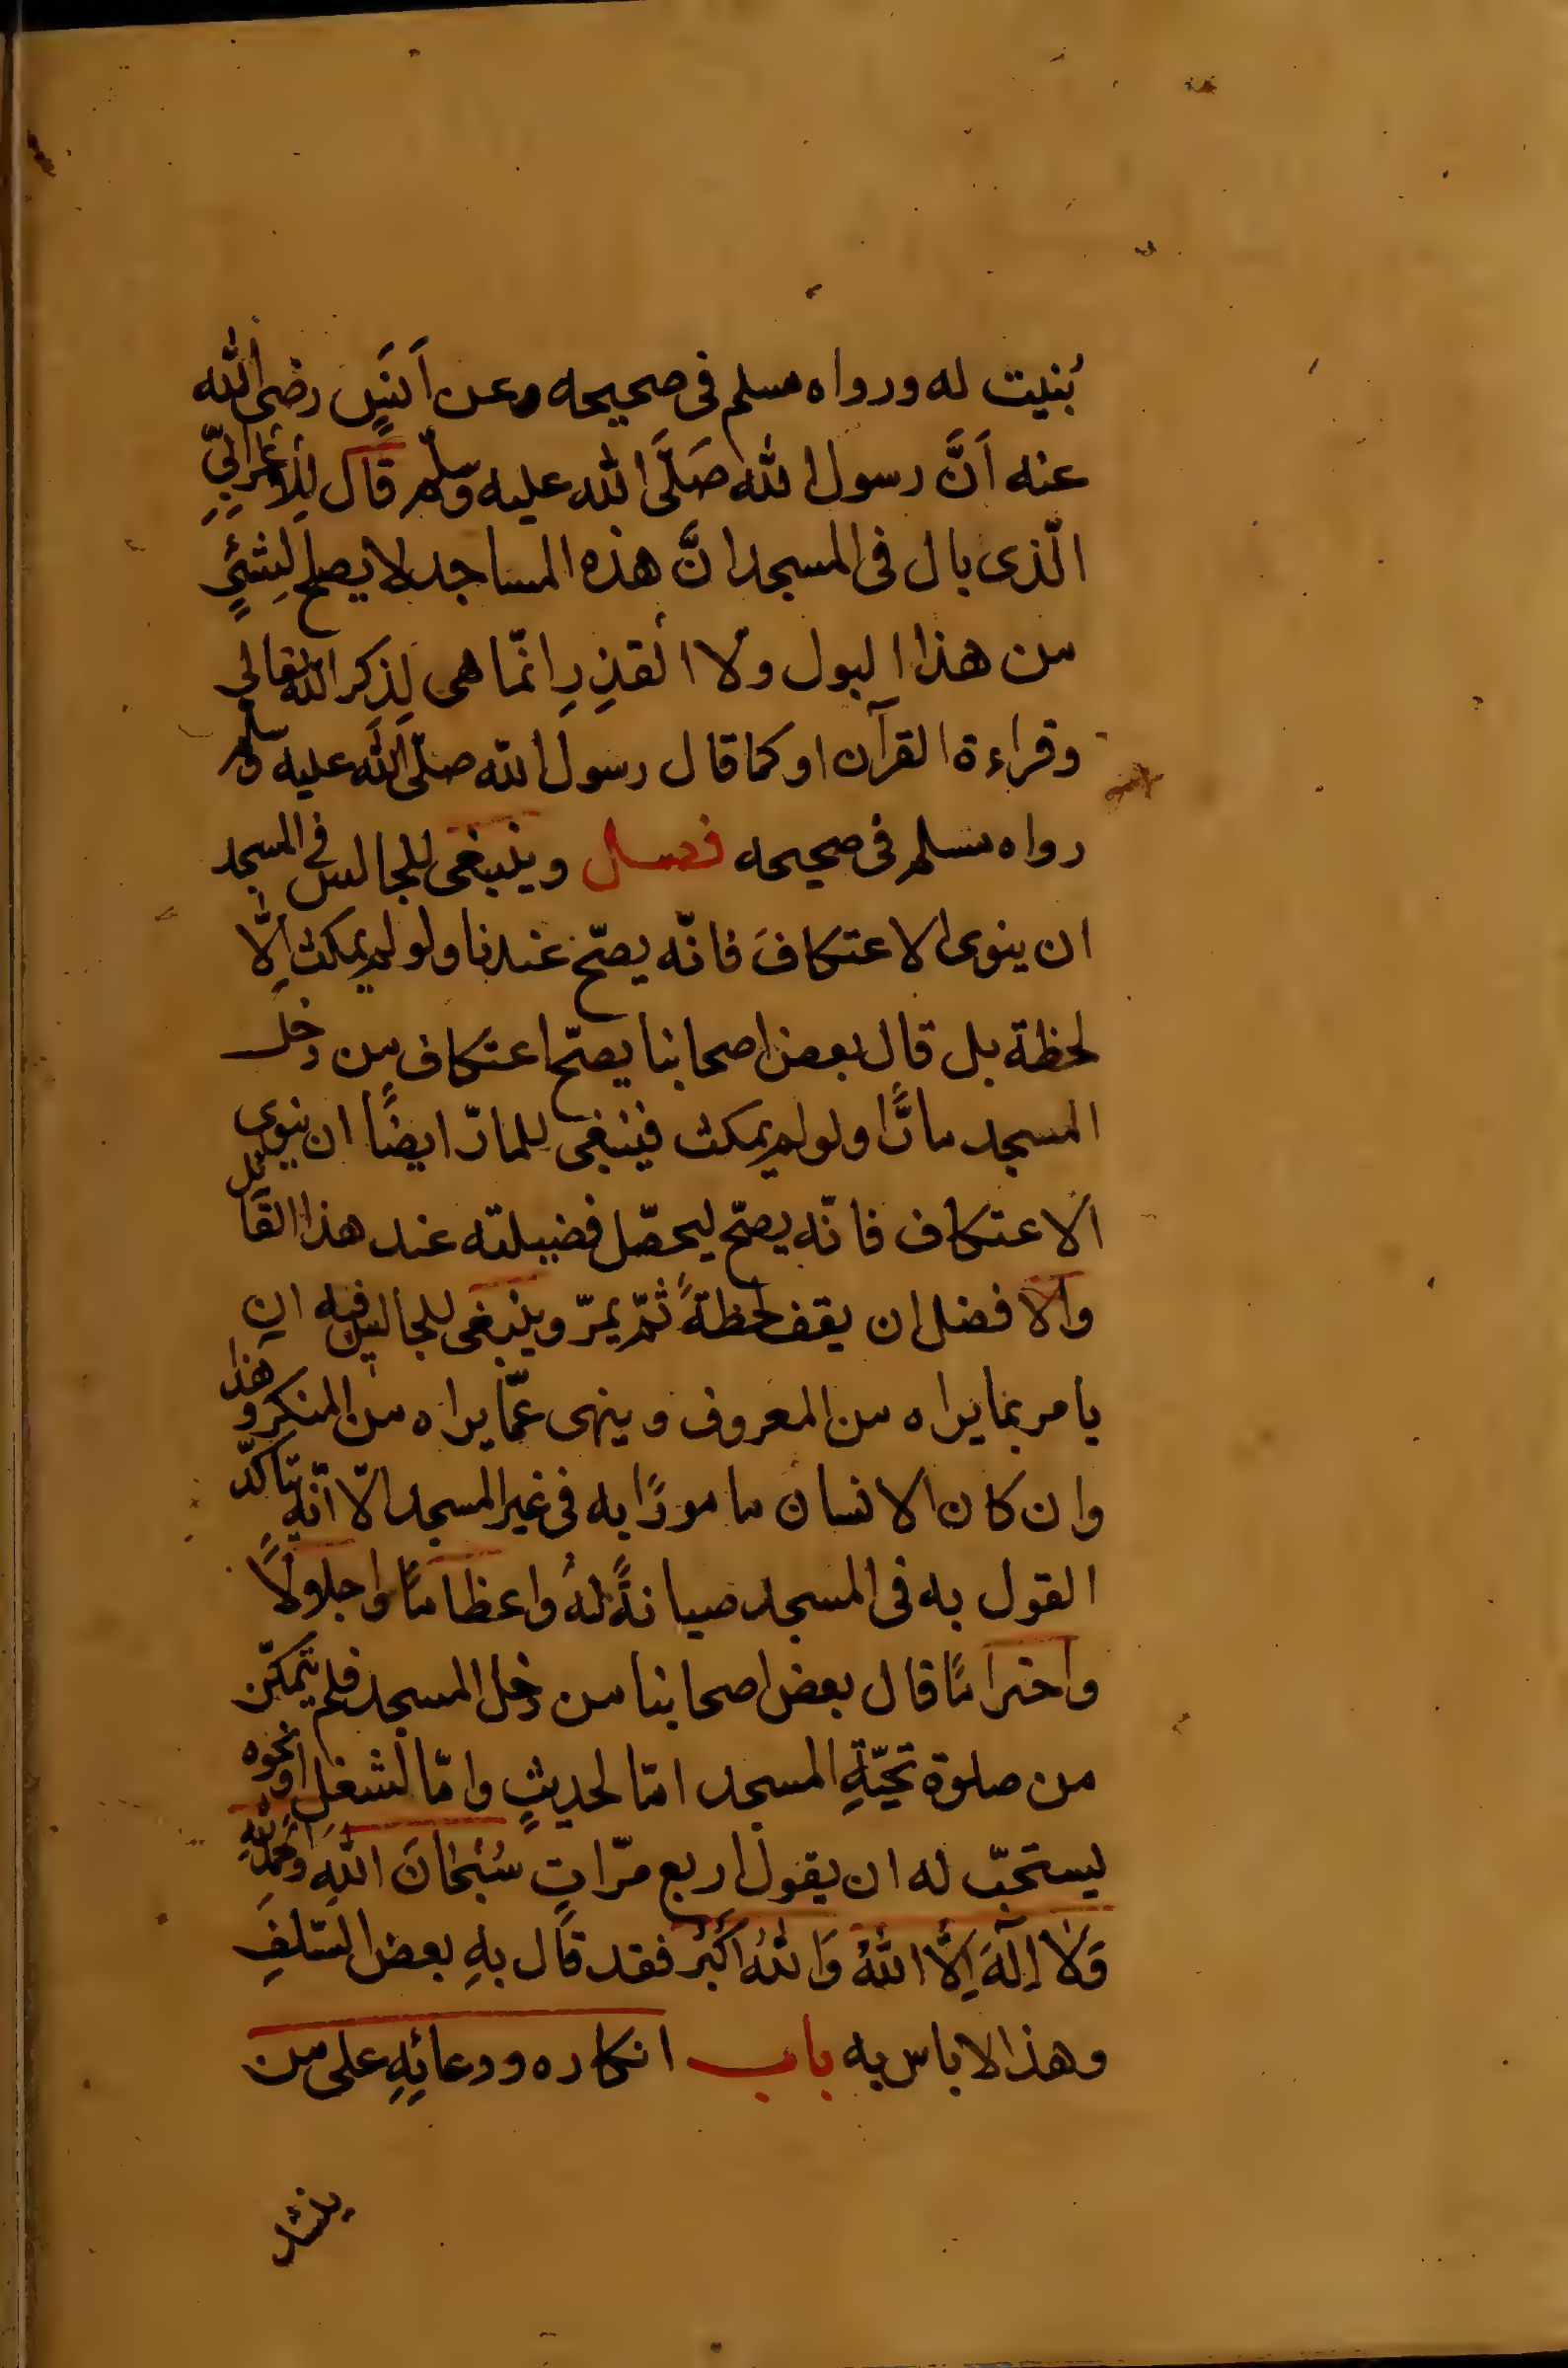 بُنيت له ورواه مسلم فى صحيحه وعن اَنَسٍ رضى الله
عنه اَنَّ رسول الله صَلَّى الله عليه وسلّم قَال لِلاَعرَابِيِّ
الّذى بال فى المسجد انَّ هذه المساجد لا يصلح لِشَيْئٍ
من هذا البول ولا القذِرِ انّما هى لِذكر الله تعالى
وقراءة القرآن او كما قال رسول الله صلّى الله عليه وسلم
رواه مسلم فى صحيحه فصل وينبغى للجالس فى المسجد
ان ينوى الاعتكافَ فانّه يصحّ عندنا ولو لم يمكث اِلّا
لحظة بل قال بعض اصحابنا يصحّ اعتكاف من دخل
المسجد مارًّا ولو لم يمكث فينبغى للمارّ ايضًا ان ينوى
الاعتكاف فانّه يصحّ ليحصّل فضيلته عند هذا القائل
والافضل ان يقف لحظةً ثمّ يمرّ وينبغى للجالس فيه ان
يامر بما يراه من المعروف وينهى عمّا يراه من المنكر وهذا
وان كان الانسان مامورًا به فى غير المسجد الّا انّه يتاكّد
القول به فى المسجد صيانةً لهُ واعظامًا واجلالًا
واحترامًا قال بعض اصحابنا من دخل المسجد فلم يتمكّن
من صلوة تحيّةِ المسجد امّا لحدثٍ وامّا لشغلِ اونحوه
يستحبّ له ان يقول اربع مرّاتٍ سُبْحَانَ اللهِ وَالحَمْدُ لِلّهِ
وَلَا اِلَهَ اِلَّا اللهُ وَاللهُ اَكْبَرُ فقد قال بهِ بعض السّلفِ
وهذا لا باس به باب انكاره ودعائِهِ على من
ينشد